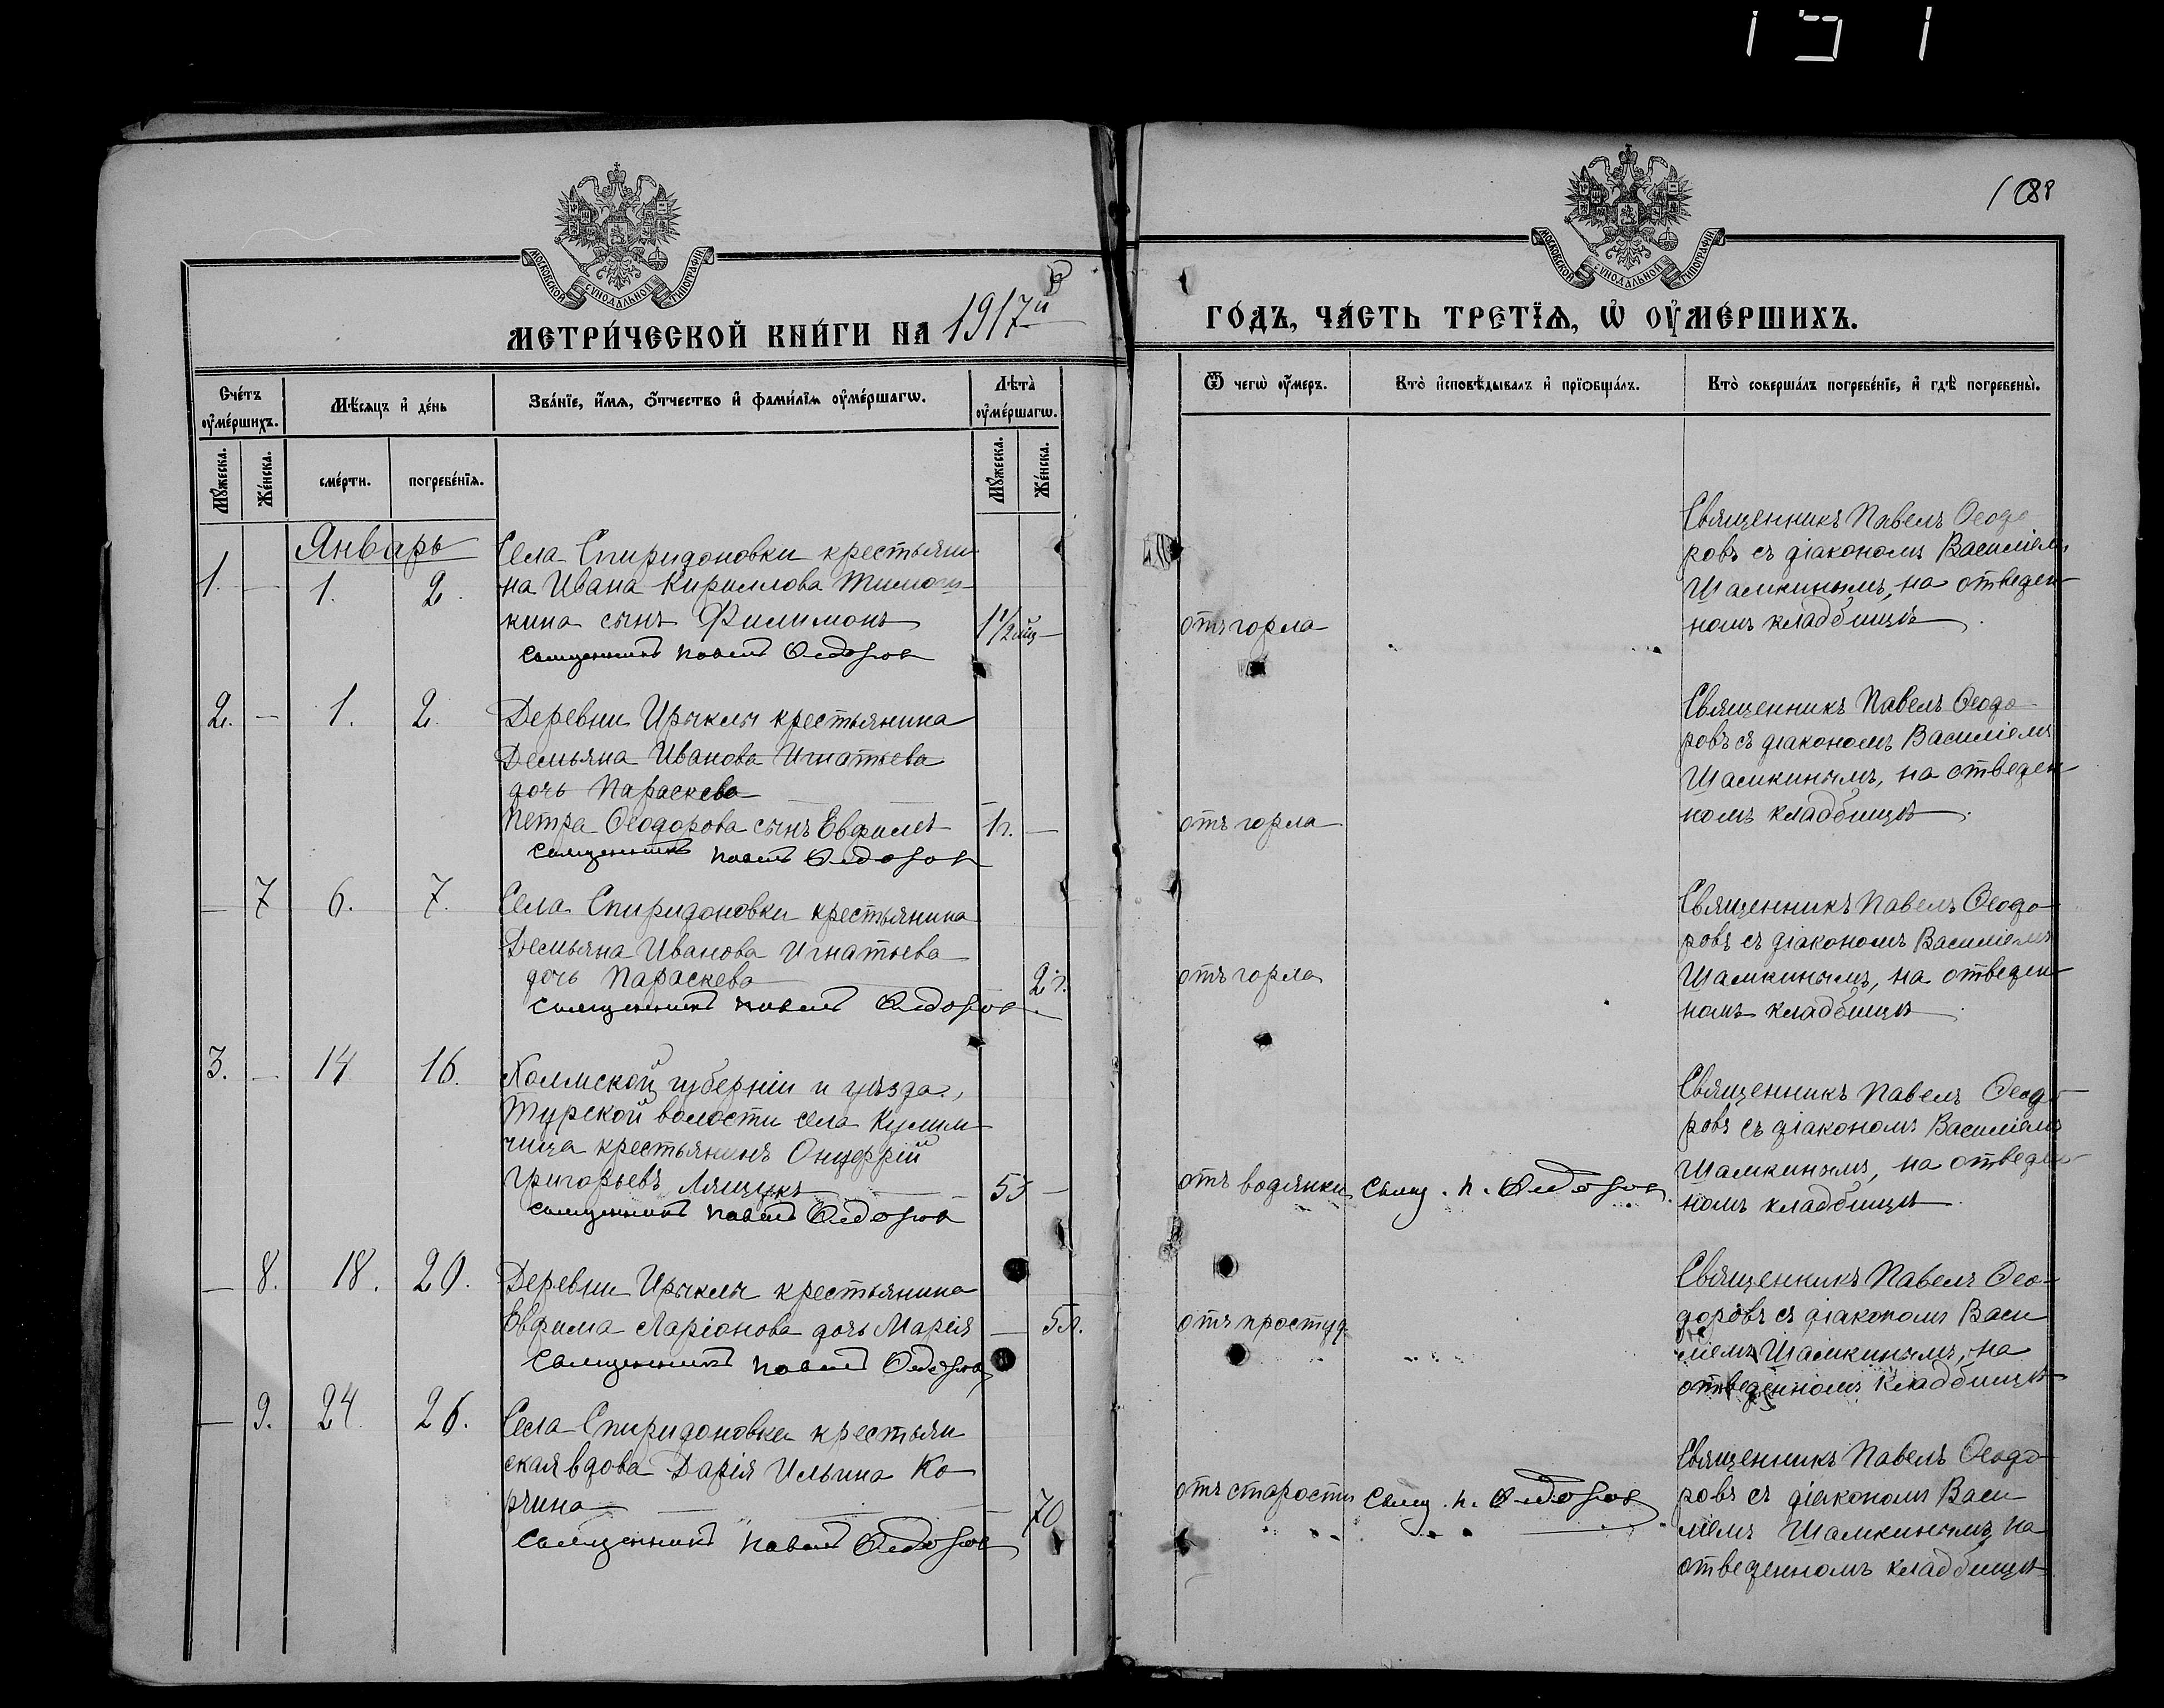 188
МОСКОВСКОЙ СѴНОДАЛЬНОЙ ТИПОГРАФІИ.
МОСКОВСКОЙ СѴНОДАЛЬНОЙ ТИПОГРАФІИ.
МЕТРИ́ЧЕСКОЙ КНИ́ГИ НА 1917й
ГО́ДЪ, ЧА́СТЬ ТРЕТІ́Ѧ, Ѡ҆ ОУ҆МЕ́РШИХЪ.
Сче́тъ оу҆ме́ршихъ.
Мѣ́сяцъ и҆ де́нь
Зва́нїе, и҆́мѧ, ѻ҆́тчество и҆ фами́лїѧ оу҆ме́ршагѡ.
Лѣта̀ оу҆ме́ршагѡ.
Ѿ чегѡ̀ оу҆́меръ.
Кто̀ и҆сповѣ́дывалъ и҆ прїѡбща́лъ.
Кто̀ соверша́лъ погребе́нїе, и҆ гдѣ̀ погребены̀.
Мꙋ́жеска.
Же́нска.
сме́рти.
погребе́нїѧ.
Мꙋ́жеска.
Же́нска.
Январь
1. — 1. 2.
Села Спиридоновки крестьяни
на Ивана Кириллова Тимош-
кина сынъ Филимонъ 1½ мц —
священникъ Павелъ Ѳеодоровъ
отъ горла
Священникъ Павелъ Ѳеодо
ровъ съ діакономъ Василіемъ
Шамкинымъ, на отведен
номъ кладбищѣ.
2. — 1. 2.
Деревни Ирыклы крестьянина
Демьяна Иванова Игнатьева
дочь Параскева
Петра Ѳеодорова сынъ Евфимъ 1 г. —
священникъ Павелъ Ѳеодоровъ
отъ горла
Священникъ Павелъ Ѳеодо
ровъ съ діакономъ Василіемъ
Шамкинымъ, на отведен
номъ кладбищѣ.
— 7 6. 7.
Села Спиридоновки крестьянина
Демьяна Иванова Игнатьева
дочь Параскева 2 г.
священникъ Павелъ Ѳеодоровъ
отъ горла
Священникъ Павелъ Ѳеодо
ровъ съ діакономъ Василіемъ
Шамкинымъ, на отведен
номъ кладбищѣ.
3. — 14 16.
Холмской губерніи и уѣзда,
Турской волости села
крестьянинъ Онуфрій
Григорьевъ Лящукъ —
священникъ Павелъ Ѳеодоровъ
отъ водянки
Свящ. П. Ѳеодоровъ.
Священникъ Павелъ Ѳеодо
ровъ съ діакономъ Василіемъ
Шамкинымъ, на отведен
номъ кладбищѣ.
— 8. 18. 20.
Деревни Ирыклы крестьянина
Евфима Ларіонова дочь Марія — 5 л.
священникъ Павелъ Ѳеодоровъ
отъ простуд
Священникъ Павелъ Ѳео-
доровъ съ діакономъ Васи
ліемъ Шамкинымъ, на
отведенномъ кладбищѣ
— 9. 24. 26.
Села Спиридоновки крестьян
ская вдова Дарія Ильина Ко
рчина — 70
священникъ Павелъ Ѳеодоровъ
отъ старости
Свящ. П. Ѳеодоровъ.
Священникъ Павелъ Ѳеодо
ровъ съ діакономъ Васи
ліемъ Шамкинымъ, на
отведенномъ кладбищѣ